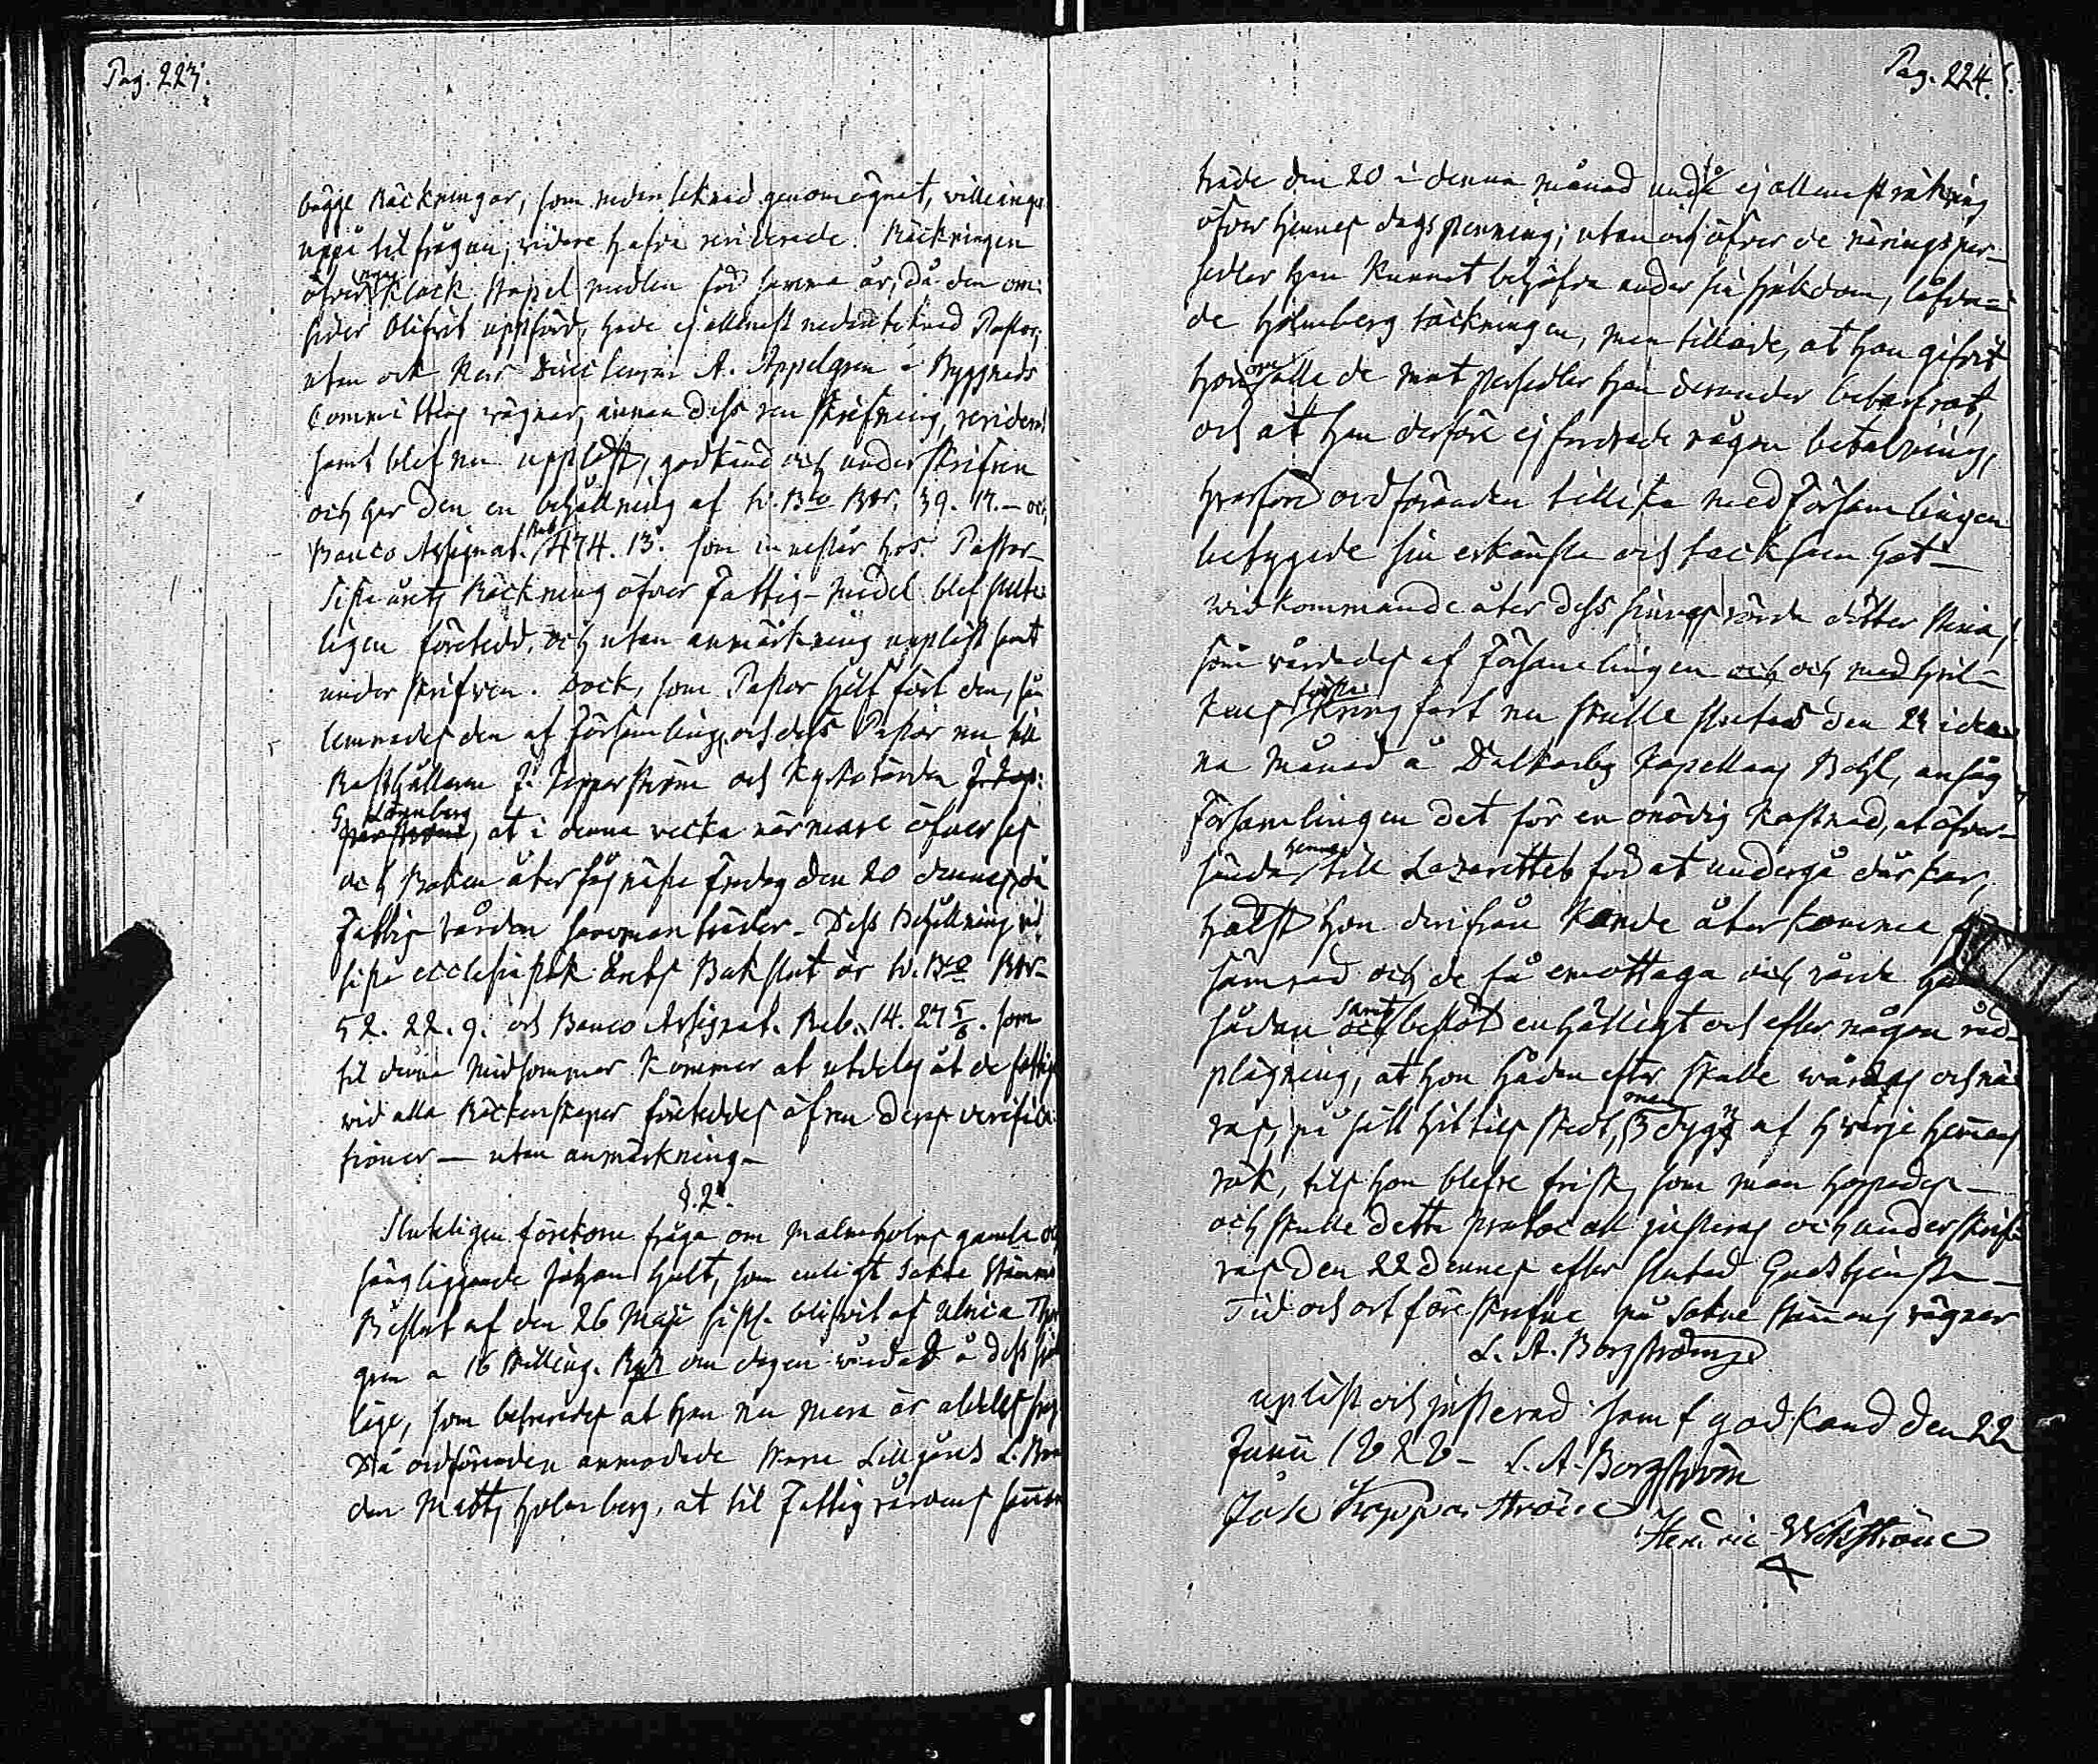 Pag. 223.
bägge Räckningar, som nedanteknad genomögnat, ville inga
uppå tilfrågan, vidare hafva reviderade. Räckningen
öfver nya Klock Stapel medlen för samma år, då den om-
sider blifvit uppförd, hade ej allenast nedanteknad Pastor,
utan ock Herr Directeuren A. Appelgren å Byggnads
Committéns vägnar, innan dess ren skrifning, reviderat
samt blef nu upplåst, godkänd och underskrifven
och har den en behållning af 39. 17. – och
Banco Assignat. Rub. 474. 13. som innestår hos Pastor –
Sista årets Räckning öfver Fattig-Medel blef slute-
ligen företedd, och utan anmärkning uppläst samt
underskrifven. Dock, som Pastor sjelf fört den, så
lemnades den af Församling. och dess Pastor nu till
Rusthållaren J. Kopparström och Kyrkovärden J. Kop-
G. Lönnberg
parström, at i denna vecka närmare öfverses
och Boken åter fås nästa Fredag den 20 dennes, då
Fattig-vården sammanträder. Dess Behållning vid
sista ecclesiastik årets Bokslut är
52. 22. 9. och Banco Assignat. Rub. 14. 27 5/6. som
til denna Midsommar kommer at utdelas åt de fattiga
vid alla Räckenskaper företeddes äfven deras verifica-
tioner – utan anmärkning –
§. 2.
Sluteligen förekom fråga om Malmholms gamla och
sängliggande Johan Hult, som enligt Sokne Stämmo
Beslut af den 26 Maji sistl. blifvit af Ulrica
gren a 16 skilling. om dagen vårdad å dess
läge, som befunnes at han nu mera är aldeles
Då ordföranden anmodade Lillgårds
den Matts Holmberg, at til Fattigvårdens samman
Pag. 224.
träde den 20 i denna månad ej allenast räkning
öfver hennes dagspenning; utan och öfver de näringsper-
sedlar han kunnat behöfva under sin sjukdom, låfva-
de Holmberg räckningen, men tillade, at han gifvit
honom alla de mat persedlar han derunder behöfvat,
och at han derföre ej fordrade någon betalning,
hvarföre ordföranden tillika med Församlingen
betygade sin erkänsla och tacksamhet –
Widkommande åter dess sinnes rörda dotter Stina,
som vårdades af Församlingen och och med hvil-
kens första kringfart nu skulle slutas den 24 i den-
na Månad å Dalkarby Kapellans Bohl, ansåg
Församlingen det för en onödig kostnad, at öfver-
sända henne till Lazarettet för at undergå där kur,
hälst hon derifrån kunde återkomma
sämrad och de få emottaga och vårda
sådan samt beslöt enhälligt och efter någon råd-
plägning, at hon hädanefter skulle vårdas och nä-
ras, på sätt hittils skedt, men 3 dygn af hvarje hemmans
rök, tils hon blefve frisk, som man hoppades –
och skulle detta protocoll justeras och underskrif-
vas den 22 dennes efter slutad Gudstjenst –
Tid och ort föreskrefne på Sokne Stämmans vägnar
L. A. Borgström
upläst och justerad samt godkänd den 22
Junii 1828 – L. A. Borgström
Joh Kopparström
Henric Wikström